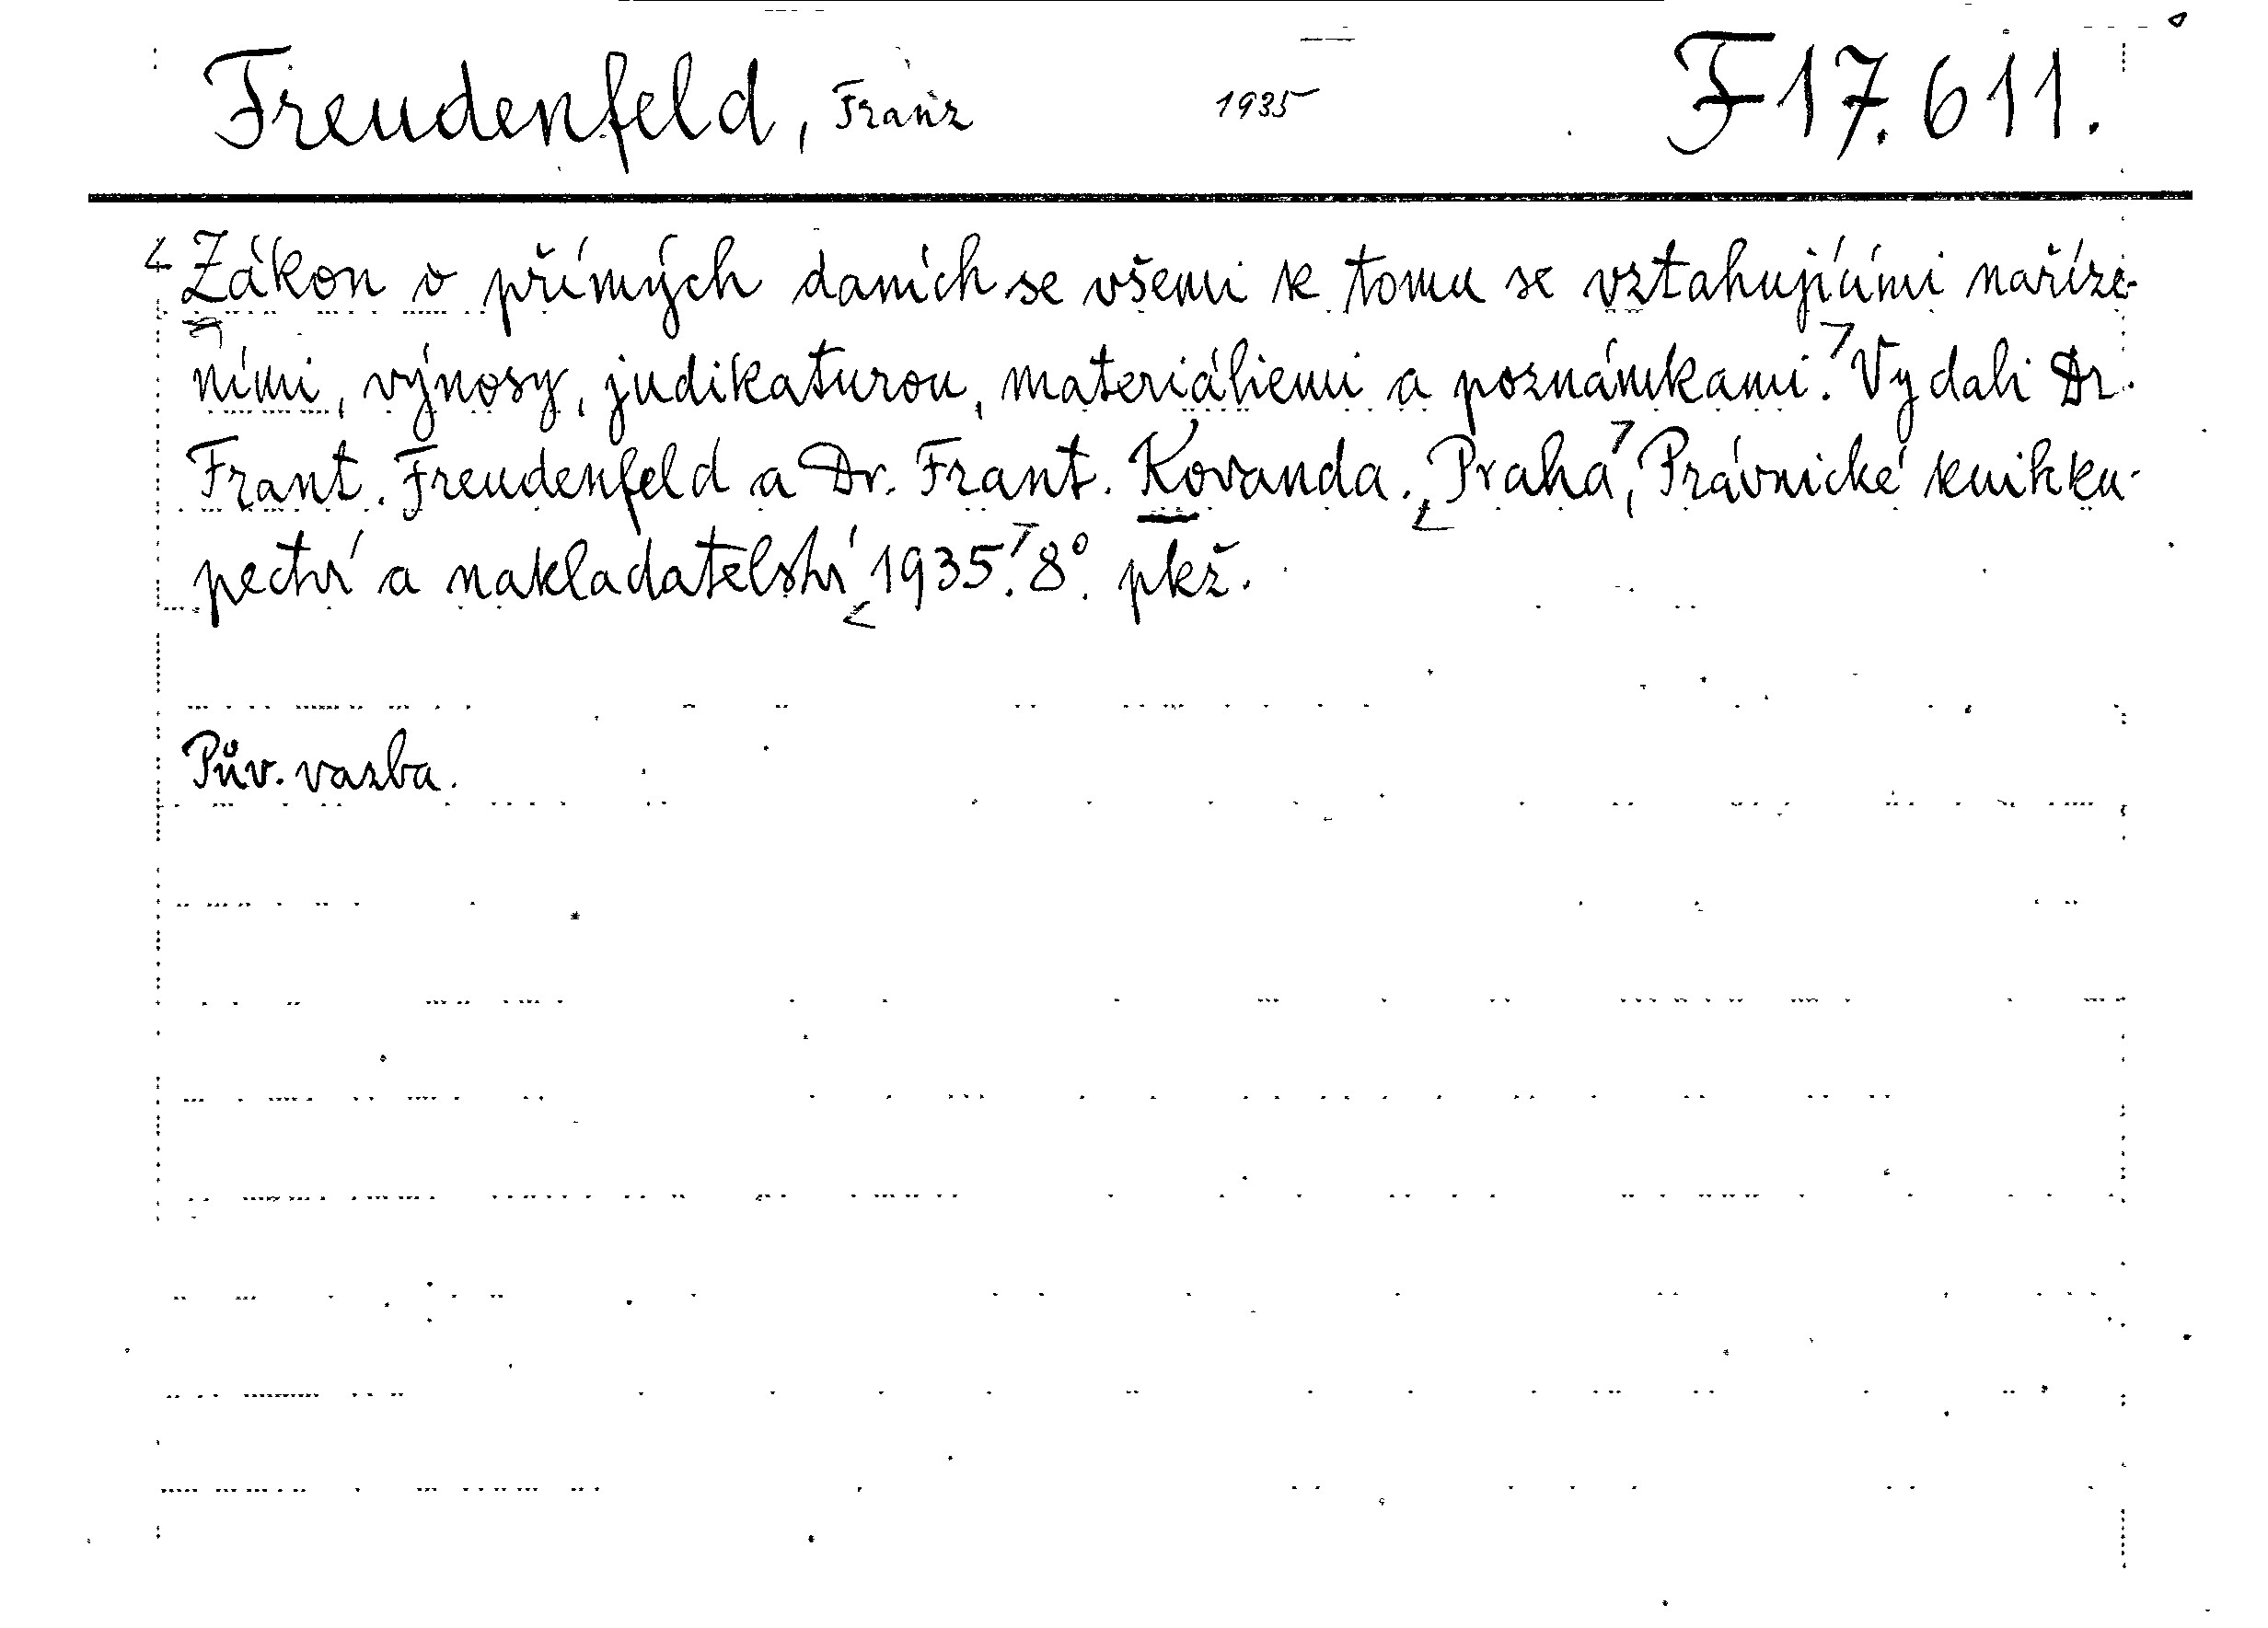 Freudenfeld, Franz 1935 F 17.611.
Zákon o přímých daních se všemi k tomu se vztahujícími naříze-
ními, výnosy, judikaturou, materiáliemi a poznámkami. Vydali Dr.
Frant. Freudenfeld a Dr. Frant. Kovanda. Praha, Právnické knihku-
pectví a nakladatelství 1935. 8°. pkž.
Pův. vazba.